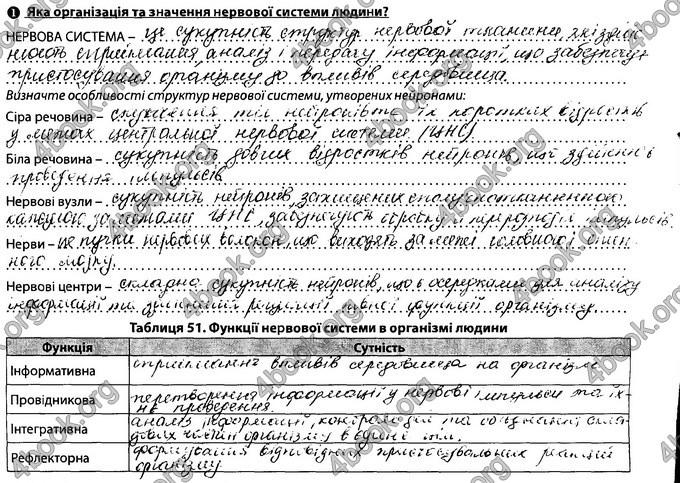 1 Яка організація та значення нервової системи людини?
НЕРВОВА СИСТЕМА – це сукупність структур нервової тканини, які здій-
снюють сприймання, аналіз і передачу інформації, що забезпечує
пристосування організму до впливів середовища.
Визначте особливості структур нервової системи, утворених нейронами:
Сіра речовина – скупчення тіл нейронів та їх коротких відростків
у межах центральної нервової системи (ЦНС)
Біла речовина – сукупність довгих відростків нейронів, що здійснює
проведення імпульсів
Нервові вузли – сукупність нейронів, захищених сполучнотканинною
капсулою за межами ЦНС, забезпечують обробку і імпульсів.
Нерви – це пучки нервових волокон, що виходять за межі головного і спин-
ного мозку.
Нервові центри – складна сукупність нейронів, що є осередками для аналізу
інформації та здійснення регуляції певної функції організму.
Таблиця 51. Функції нервової системи в організмі людини
Функція Сутність
Інформативна сприймання впливів середовища на організм
Провідникова перетворення інформації у нервові імпульси та їх-
нє проведення.
Інтегративна аналіз інформації, контроль та скла-
дових частин організму в єдине ціле.
Рефлекторна формування відповідних пристосувальних реакцій
організму
4book.org